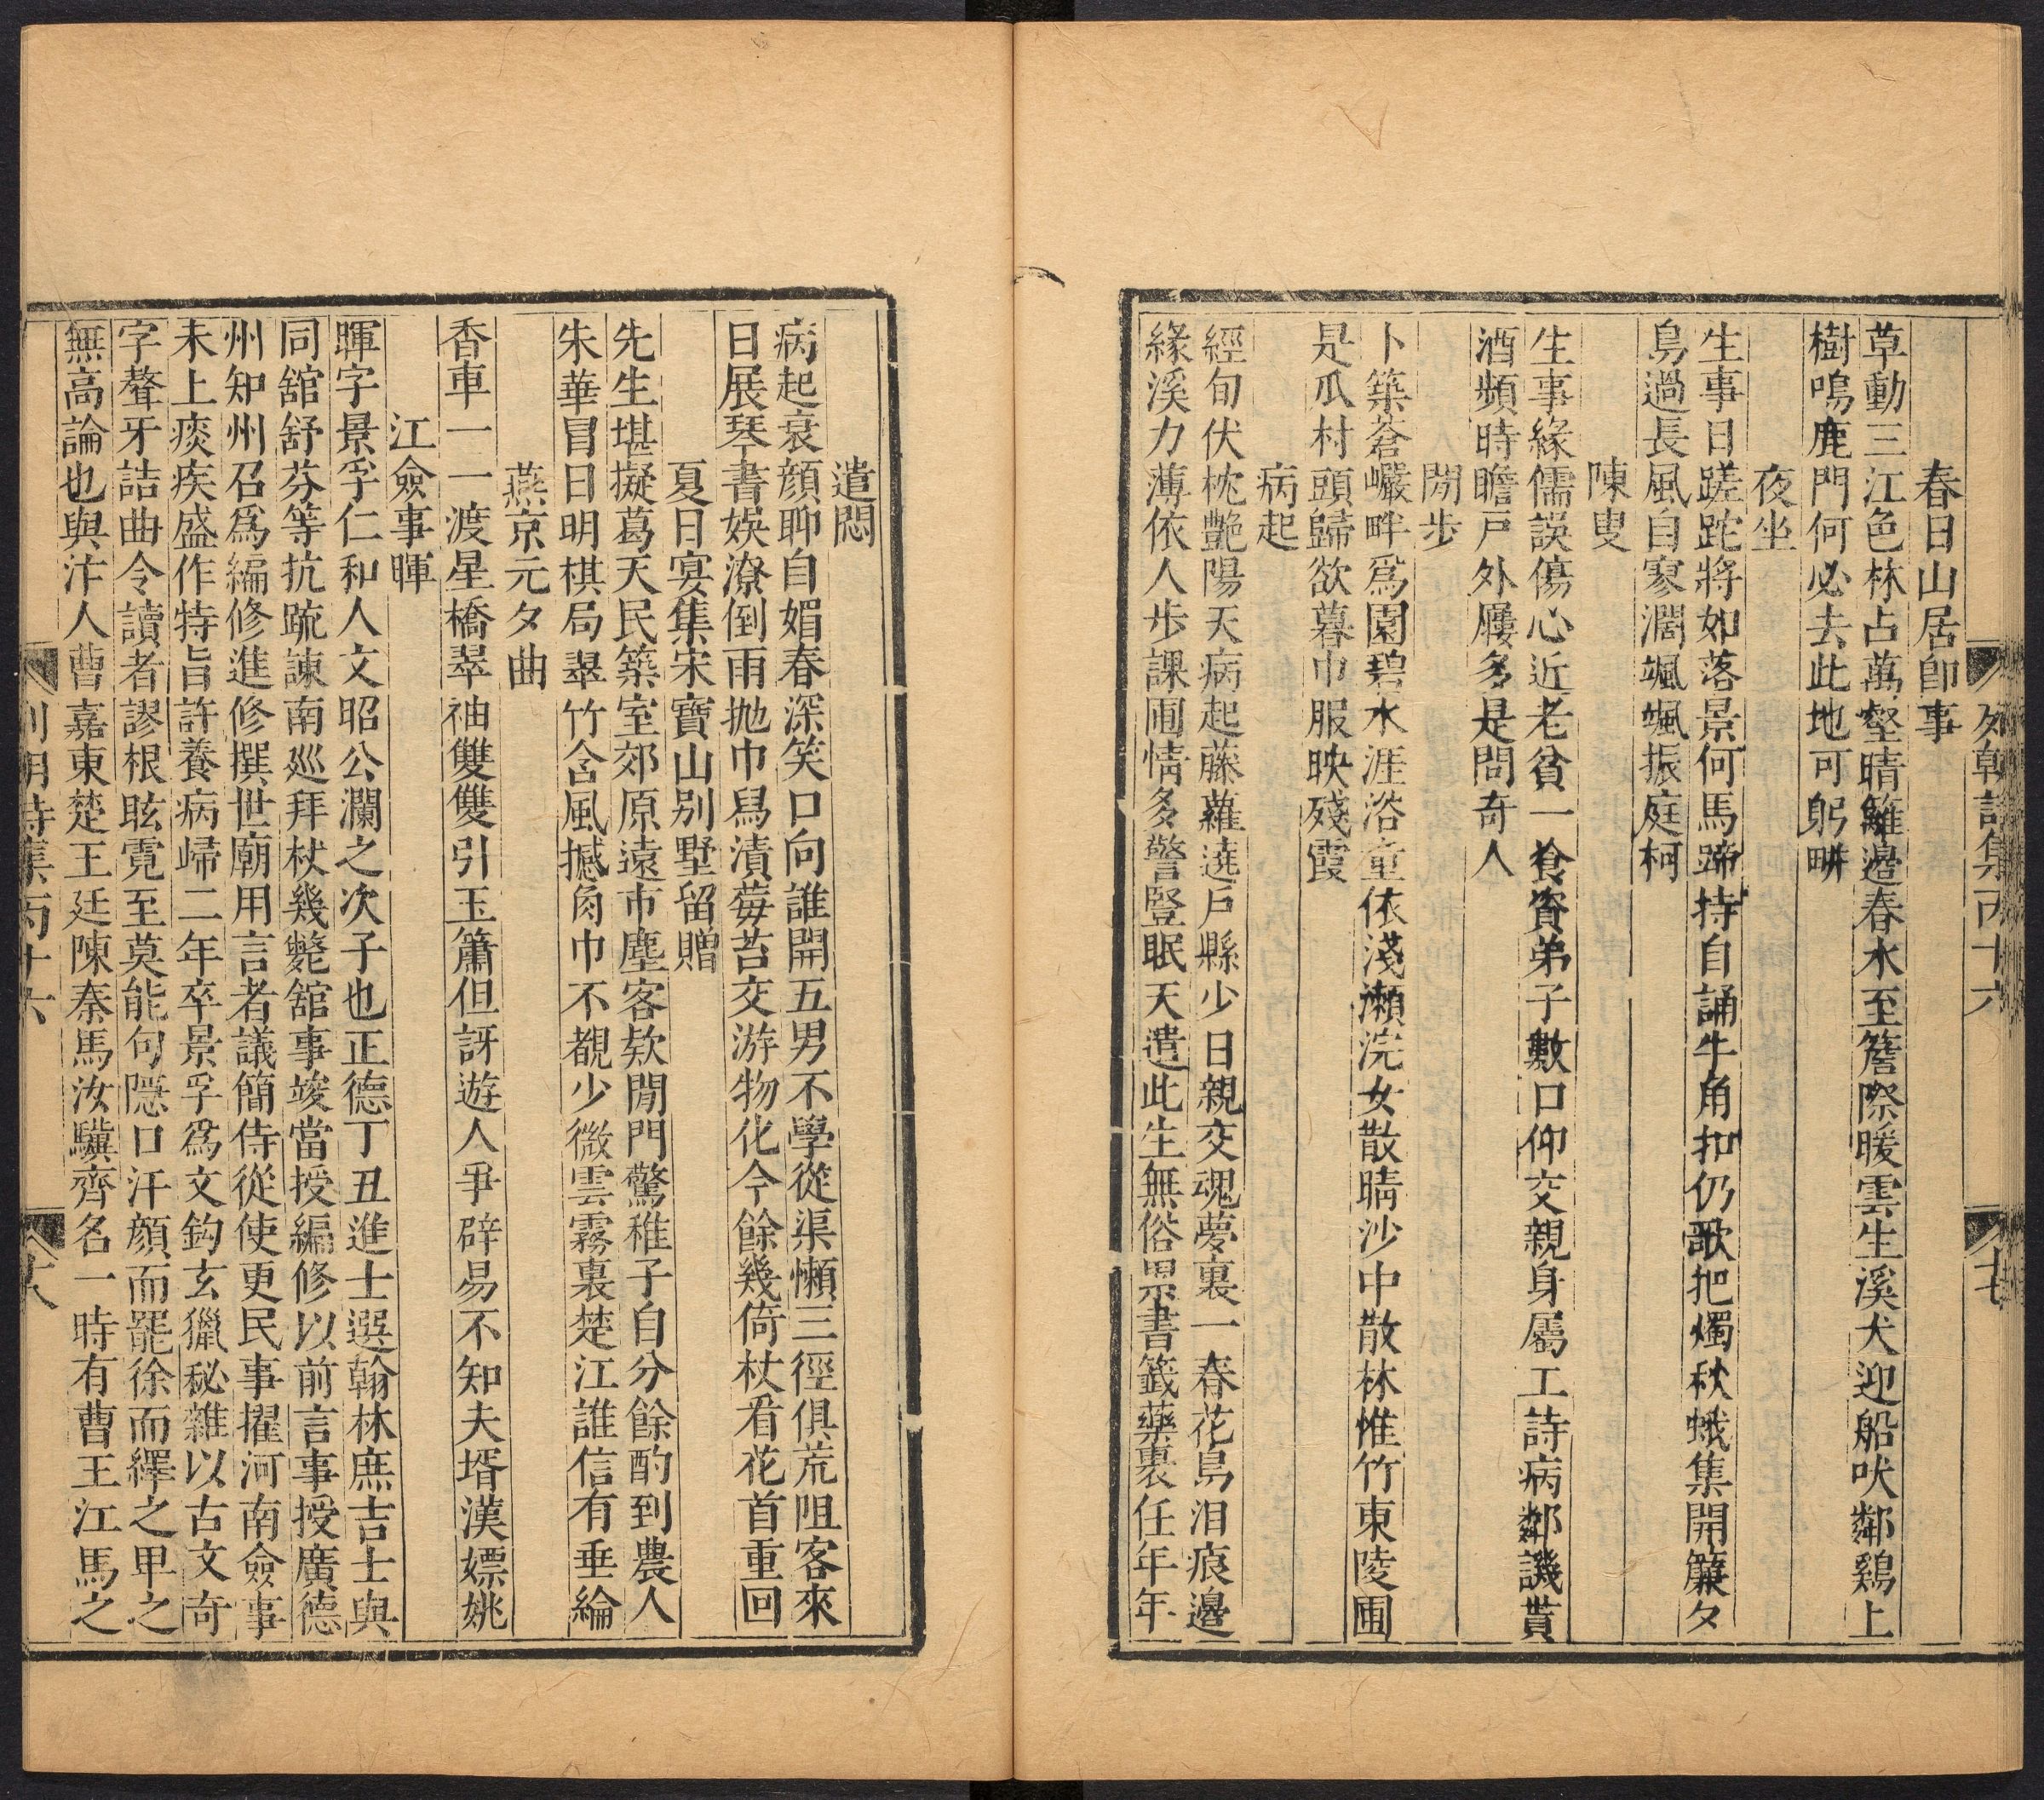 列朝詩集丙十六
十七
春日山居卽事
草動三江色林占萬壑晴籬邊春水至簷際暖雲生溪犬迎船吠鄰鷄上
樹鳴鹿門何必去此地可躬畊
夜坐
生事日蹉跎將如落景何馬蹄持自誦牛角扣仍歌把燭秋蛾集開簾夕
鳥過長風自寥濶颯颯振庭柯
陳叟
生事緣儒誤傷心近老貧一飡資弟子數口仰交親身屬工詩病鄰譏貰
酒頻時瞻戸外屨多是問奇人
閒步
卜築蒼巗畔爲園碧水涯浴童依淺瀬浣女散晴沙中散林惟竹東陵圃
是瓜村頭歸欲暮巾服映殘霞
病起
經旬伏枕艷陽天病起藤蘿遶戸縣少日親交魂夢裏一春花鳥泪痕邊
緣溪力薄依人步課圃情多警豎眠天遣此生無俗累書籤藥裹任年年
遣悶
病起衰顔聊自媚春深笑口向誰開五男不學從渠懶三徑俱荒阻客來
日展琴書娛潦倒雨抛巾舄漬莓苔交游物化今餘幾倚杖看花首重回
夏日宴集宋寶山别墅留贈
先生堪擬葛天民築室郊原遠市塵客欵閒門驚稚子自分餘酌到農人
朱華冒日明棋局翠竹含風撼角巾不覩少微雲霧裏楚江誰信有垂綸
燕京元夕曲
香車一一渡星橋翠袖雙雙引玉簫但訝遊人爭辟易不知夫壻漢嫖姚
江僉事暉
暉字景孚仁和人文昭公瀾之次子也正德丁丑進士選翰林庶吉士與
同舘舒芬等抗疏諫南廵拜杖幾斃舘事竣當授編修以前言事授廣德
州知州召爲編修進修撰世廟用言者議簡侍從使更民事擢河南僉事
未上痰疾盛作特旨許養病歸二年卒景孚爲文鈎玄獵秘雜以古文奇
字聱牙詰曲令讀者謬根眩霓至莫能句隱口汗顔而罷徐而繹之甲之
無高論也與汴人曹嘉東楚王廷陳秦馬汝驥齊名一時有曹王江馬之
列朝詩集丙十六
十八